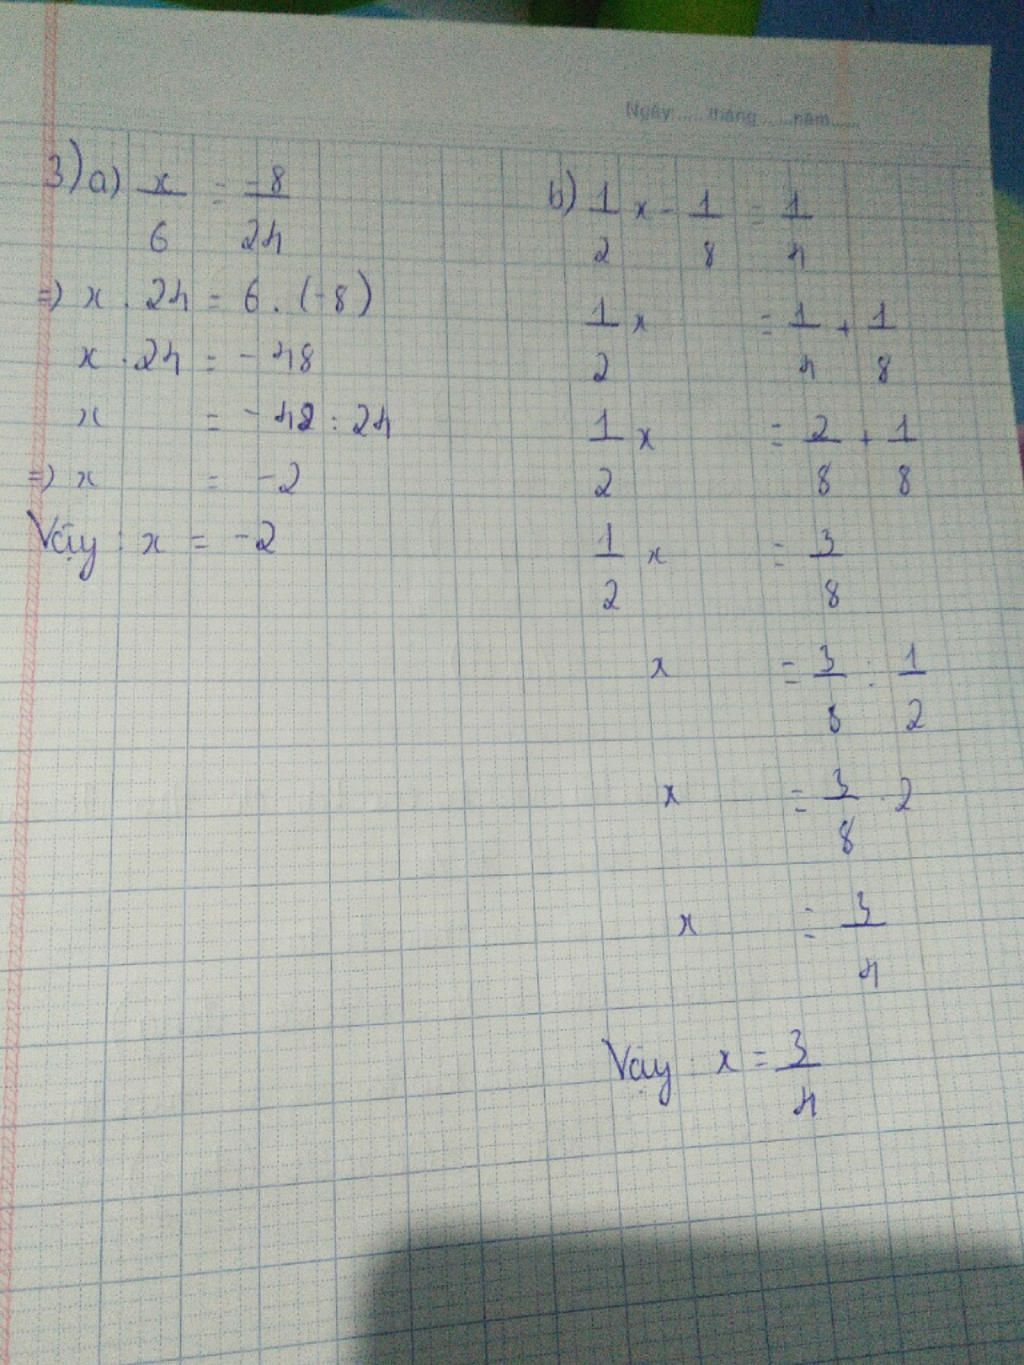 Ngày ..... tháng ..... năm .....
3) a) x/6 = -8/24
=) x . 24 = 6 . (-8)
x . 24 = - 48
x = - 48 : 24
=) x = -2
Vậy : x = -2
b) 1/2 x - 1/8 = 1/4
1/2 x = 1/4 + 1/8
1/2 x = 2/8 + 1/8
1/2 x = 3/8
x = 3/8 : 1/2
x = 3/8 . 2
x = 3/4
Vậy : x = 3/4